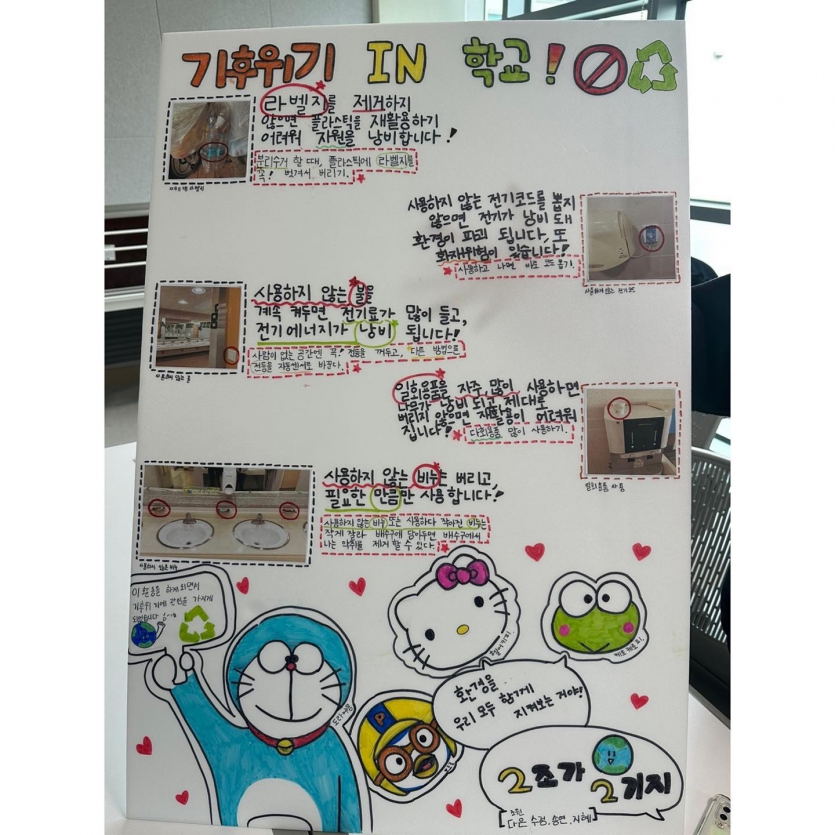 기후위기 IN 학교!
라벨지를 제거하지
않으면 플라스틱을 재활용하기
어려워 자원을 낭비합니다!
분리수거 할 때, 플라스틱에 라벨지를
꼭! 벗겨서 버리기.
사용하지 않는 전기코드를 뽑지
않으면 전기가 낭비 돼
환경이 파괴 됩니다. 또
화재위험이 있습니다!
사용하고 나면 바로 코드 뽑기.
사용하지 않는 불을
계속 켜두면 전기료가 많이 들고,
전기 에너지가 낭비 됩니다!
사람이 없는 공간엔 꼭! 전등을 꺼두고, 다른 방법으론
전등을 자동센서로 바꾼다.
일회용품을 자주, 많이 사용하면
나무가 낭비 되고 제대로
버리지 않으면 재활용이 어려워
집니다!
다회용품 많이 사용하기.
사용하지 않는 비누는 버리고,
필요한 만큼만 사용합니다!
사용하지 않는 비누 또는 사용하다 작아진 비누는
작게 잘라 배수구에 담아두면 배수구에서
나는 악취를 제거 할 수 있다.
이 활동을 하게 되면서
기후위기에 관심을 가지게
되었습니다
도라에몽
헬로키티
케로케로피
P
환경을
우리 모두 함께
지켜보는 거야!
2조가 2기지
조원
다은, 수정, 송연, 지혜